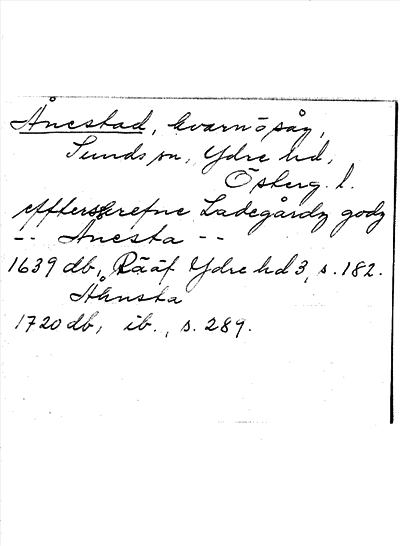 Ånestad, kvarn o såg,
Sunds sn, Ydre hd,
Österg. l.
effterskrefne Ladegårdz godz
-- Anesta --
1639 db, Rääf Ydre hd 3, s. 182.
Hånsta
1720 db, ib., s. 289.